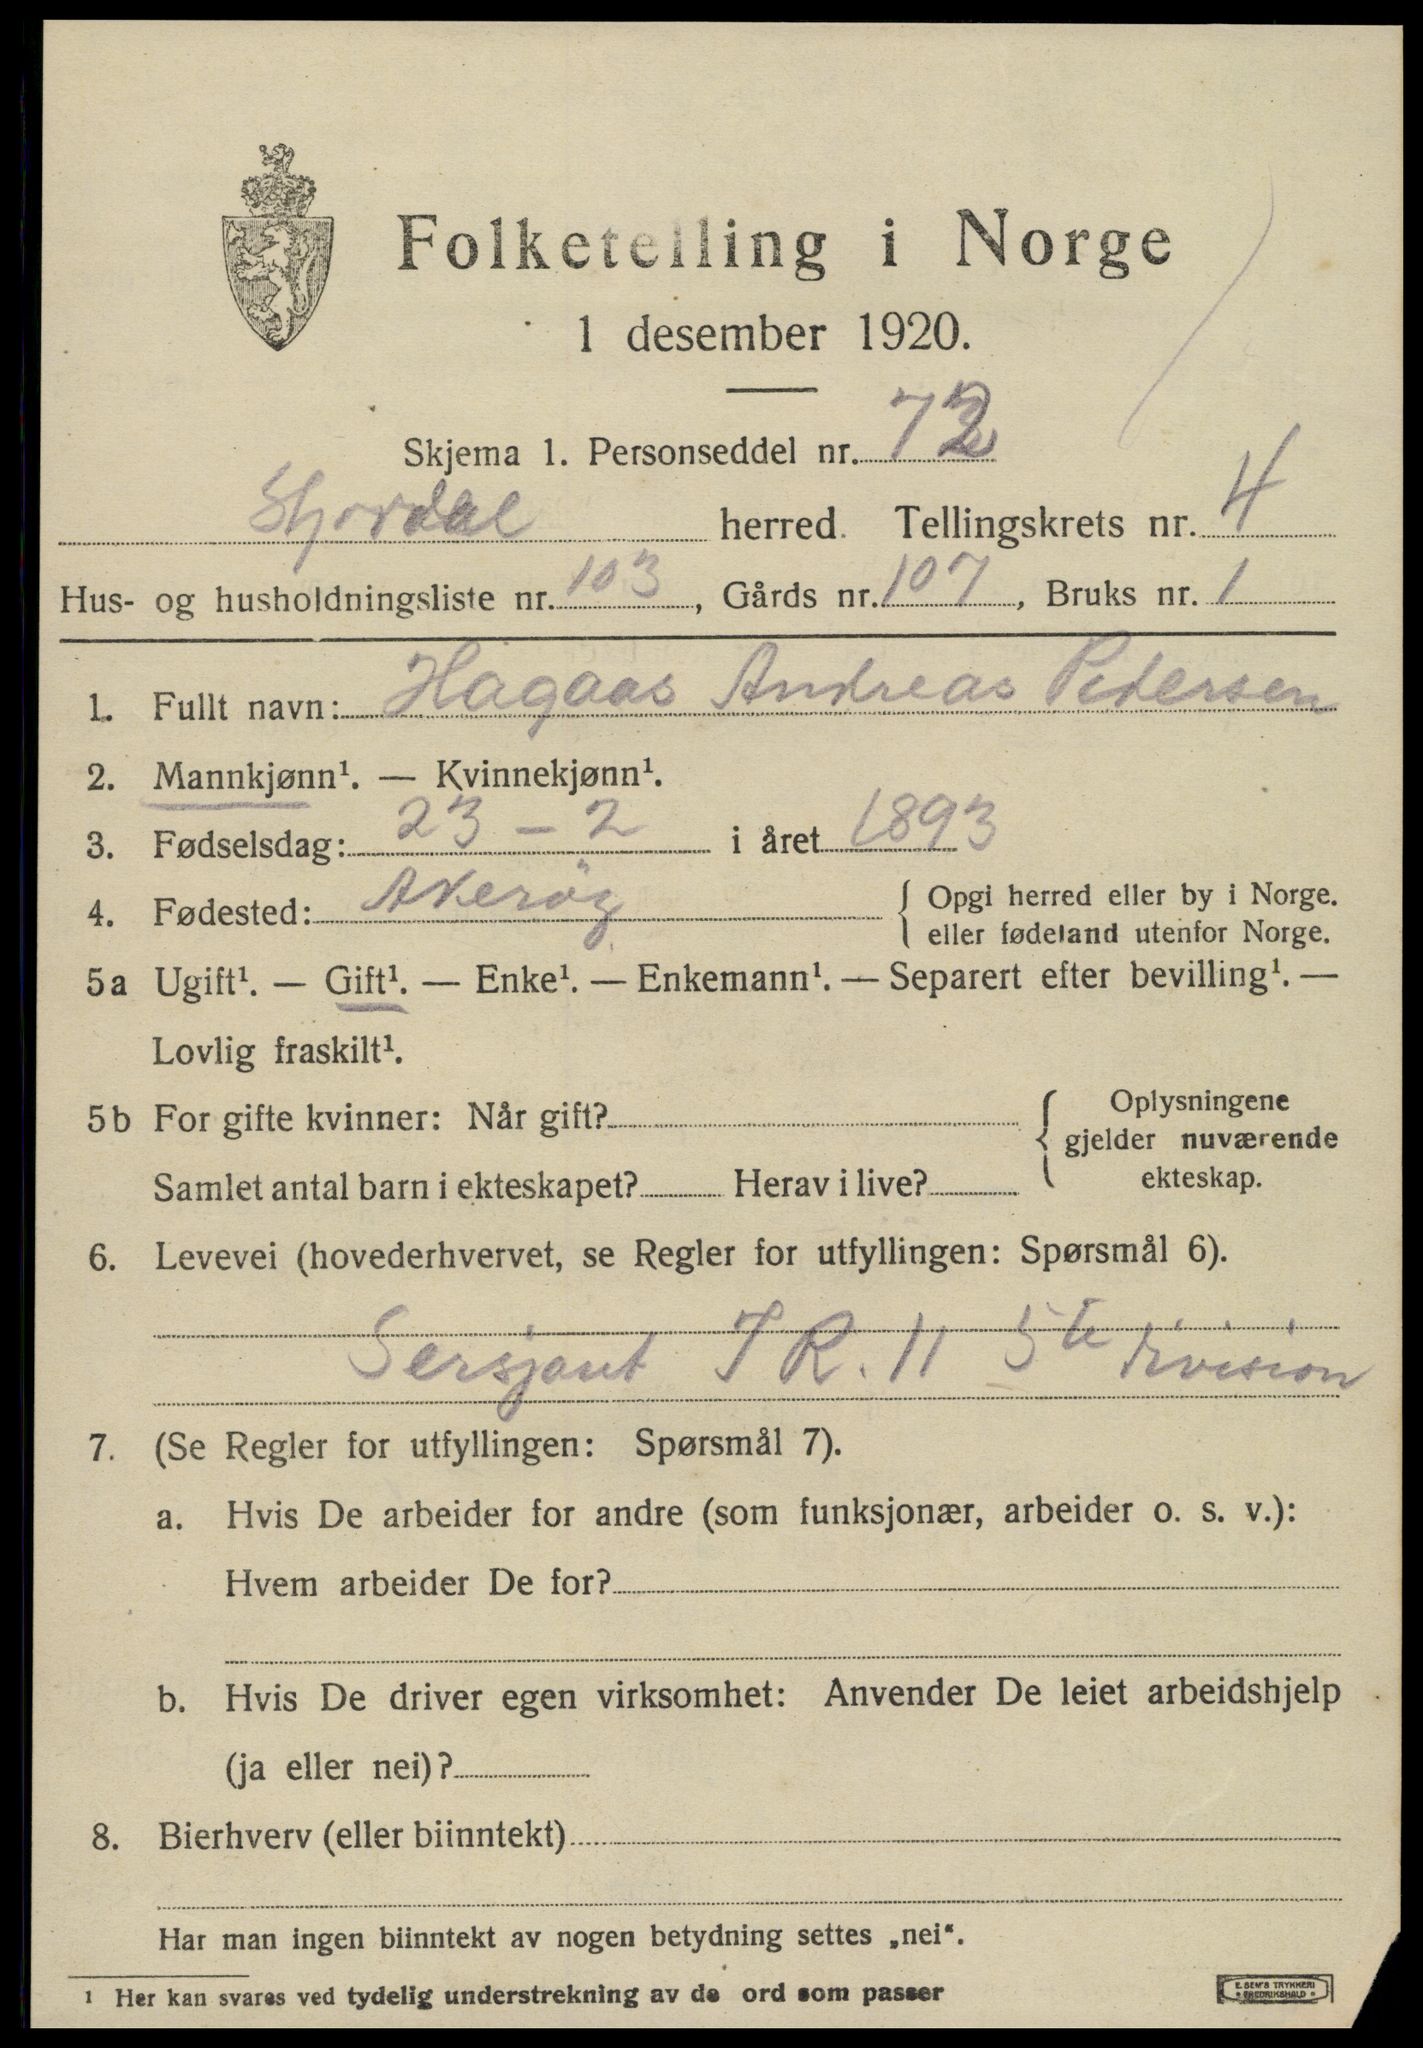 Folketelling i Norge
1 desember 1920.
Skjema 1. Personseddel nr. 72
Stjørdal herred. Tellingskrets nr. 4
Hus- og husholdningsliste nr. 103, Gårds nr. 107, Bruks nr. 1
1. Fullt navn: Hagaas Andreas Pedersen
2. Mannkjønn¹. — Kvinnekjønn¹.
3. Fødselsdag: 23 – 2 i året 1893
4. Fødested: Akerøy { Opgi herred eller by i Norge.
eller fødeland utenfor Norge.
5a Ugift¹. — Gift¹. — Enke¹. — Enkemann¹. — Separert efter bevilling¹. —
Lovlig fraskilt¹.
5b For gifte kvinner: Når gift?
Samlet antal barn i ekteskapet? Herav i live?
{ Oplysningene
gjelder nuværende
ekteskap.
6. Levevei (hovederhvervet, se Regler for utfyllingen: Spørsmål 6).
Sersjant I R. 11 5te division
7. (Se Regler for utfyllingen: Spørsmål 7).
a. Hvis De arbeider for andre (som funksjonær, arbeider o. s. v.):
Hvem arbeider De for?
b. Hvis De driver egen virksomhet: Anvender De leiet arbeidshjelp
(ja eller nei)?
8. Bierhverv (eller biinntekt)
Har man ingen biinntekt av nogen betydning settes „nei“.
¹ Her kan svares ved tydelig understrekning av de ord som passer
E. SEM'S TRYKKERI
FREDRIKSHALD